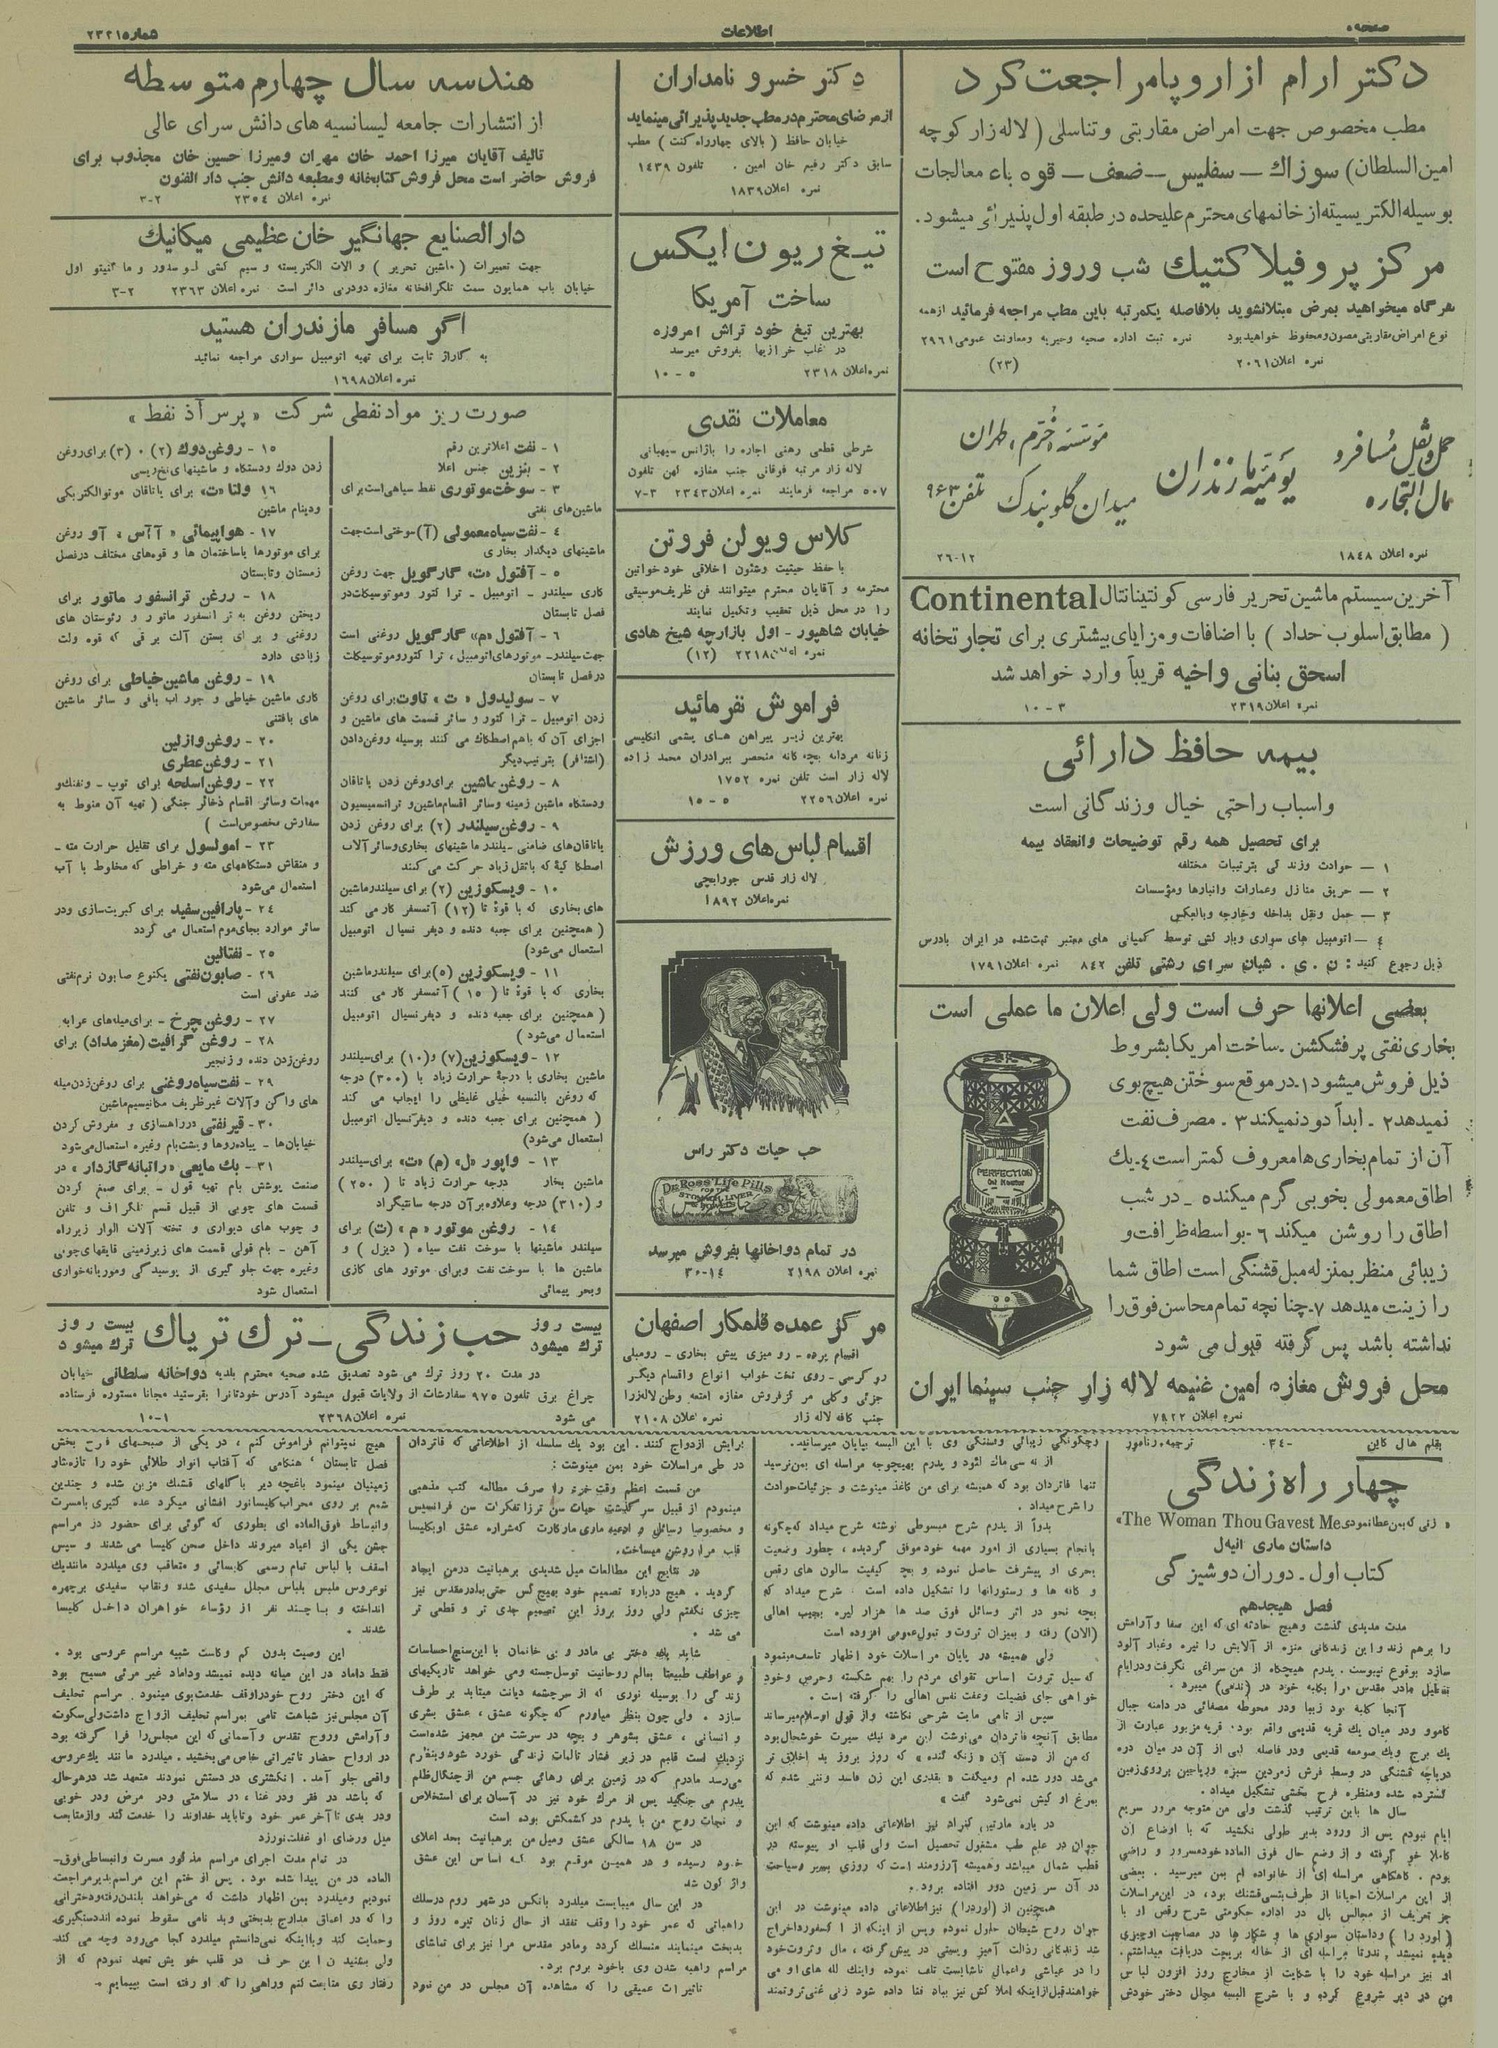 صفحه ۰
اطلاعات
شماره ۲۳۲۱
دکتر ارام از اروپا مراجعت کرد
مطب مخصوص جهت امراض مقاربتی و تناسلی ( لاله زار کوچه
امین السلطان ) سوزاك – سفلیس – ضعف – قوه باء معالجات
بوسیله الکتریسیته از خانمهای محترم علیحده در طبقه اول پذیرائی میشود.
مرکز پروفیلاکتیك شب وروز مفتوح است
هرگاه میخواهید بمرض مبتلا نشوید بلافاصله یکمرتبه باین مطب مراجعه فرمائید از همه
نوع امراض مقاربتی مصون و محفوظ خواهید بود نمره ثبت اداره صحیه وخیریه ومعاونت عمومی ۲۹۶۱
نمره اعلان ۲۰۶۱ (۲۳)
حمل ونقل مسافر و
مال التجاره
یومیه مازندران
مؤسسه اخترم ، طهران
میدان گلوبندک تلفن ۹۶۳
نمره اعلان ۱۸۴۸ ۲۶-۱۲
آخرین سیستم ماشین تحریر فارسی کونتیناتال Continental
( مطابق اسلوب حداد ) با اضافات و مزایای بیشتری برای تجارتخانه
اسحق بنانی واخیه قریباً وارد خواهد شد
نمره اعلان ۲۳۱۹ ۳ - ۱۰
بیمه حافظ دارائی
واسباب راحتی خیال وزندگانی است
برای تحصیل همه رقم توضیحات وانعقاد بیمه
۱ – حوادث وزندگی بترتیبات مختلفه
۲ – حریق منازل وعمارات وانبارها ومؤسسات
۳ – حمل ونقل بداخله وخارجه وبالعکس
٤ – اتومبیل های سواری وبار کشی توسط کمپانی های معتبر ثبت شده در ایران بادرس
ذیل رجوع کنید : ن . ی . شبان سرای رشتی تلفن ۸۴۲ نمره اعلان ۱۷۹۱
بعضی اعلانها حرف است ولی اعلان ما عملی است
بخاری نفتی پرفکشن . ساخت امریکا بشروط
ذیل فروش میشود ۱- در موقع سوختن هیچ بوی
نمیدهد ۲ - ابداً دود نمیکند ۳ . مصرف نفت
آن از تمام بخاری ها معروف کمتر است ٤- یك
اطاق معمولی بخوبی گرم میکند ٥ - در شب
اطاق را روشن میکند ٦ - بواسطه ظرافت و
زیبائی منظر بمنزله مبل قشنگی است اطاق شما
را زینت میدهد ۷- چنانچه تمام محاسن فوق را
نداشته باشد پس گرفته قبول می شود
محل فروش مغازه امین غنیمه لاله زار جنب سینما ایران
نمره اعلان ۷۹۲۲
PERFECTION
Oil Heater
دکتر خسرو نامداران
از مرضای محترم در مطب جدید پذیرائی مینماید
خیابان حافظ ( بالای چهارراه کنت ) مطب
سابق دکتر رفیع خان امین . تلفون ۱۴۳۹
نمره اعلان ۱۸۳۹
تیغ ریون ایکس
ساخت آمریکا
بهترین تیغ خود تراش امروزه
در غالب خرازیها بفروش میرسد
نمره اعلان ۲۳۱۸ ۵ - ۱۰
معاملات نقدی
شرطی قطعی رهنی اجاره را باژانس سپهبانی
لاله زار مرتبه فوقانی جنب مغازه لهن تلفون
۵۰۷ مراجعه فرمایند نمره اعلان ۲۳۴۳ ۳-۷
کلاس ویولن فروتن
با حفظ حیثیت وشئون اخلاقی خود خواتین
محترمه و آقایان محترم میتوانند فن ظریف موسیقی
را در محل ذیل تعقیب وتکمیل نمایند
خیابان شاهپور – اول بازارچه شیخ هادی
نمره اعلان ۲۲۱۸ (۱۲)
فراموش نفرمائید
بهترین زیر پیراهن های پشمی انگلیسی
زنانه مردانه بچه گانه منحصر ببرادران محمد زاده
لاله زار است تلفن نمره ۱۷۵۲
نمره اعلان ۲۲۵۶ ۵ - ۱۵
اقسام لباس های ورزش
لاله زار قدس جورابچی
نمره اعلان ۱۸۹۲
حب حیات دکتر راس
Dr. Ross' Life Pills
FOR THE
STOMACH LIVER
در تمام دواخانها بفروش میرسد
نمره اعلان ۲۱۹۸ ۱۴-۳۰
مرکز عمده قلمکار اصفهان
اقسام پرده – رو میزی پیش بخاری – رومبلی
رو کرسی – روی تخت خواب انواع واقسام دیگر
جزئی وکلی مرکز فروش مغازه امتعه وطن لاله زار
جنب کافه لاله زار نمره اعلان ۲۱۰۸
هندسه سال چهارم متوسطه
از انتشارات جامعه لیسانسیه های دانش سرای عالی
تالیف آقایان میرزا احمد خان مهران ومیرزا حسین خان مجذوب برای
فروش حاضر است محل فروش کتابخانه ومطبعه دانش جنب دار الفنون
نمره اعلان ۲۳۵۴ ۲-۳
دار الصنایع جهانگیر خان عظیمی میکانیك
جهت تعمیرات ( ماشین تحریر ) و الات الکتریسته و سیم کشی لوسدور و ماگنیتو اول
خیابان باب همایون سمت تلگرافخانه مغازه دودربی دائر است نمره اعلان ۲۳۶۳ ۲-۳
اگر مسافر مازندران هستید
به گاراژ ثابت برای تهیه اتومبیل سواری مراجعه نمائید
نمره اعلان ۱۶۹۸
صورت ریز مواد نفطی شرکت « پرس آذ نفط »
۱ - نفت اعلاترین رقم
۲ - بنزین جنس اعلا
۳ - سوخت موتوری نفط سیاهی است برای
ماشین های نفتی
٤ - نفت سیاه معمولی (آ) سوختی است جهت
ماشینهای دیگدار بخاری
۵ - آفتول «ت» گارگویل جهت روغن
کاری سیلندر – اتومبیل – تراکتور وموتوسیکلت در
فصل تابستان
۶ - آفتول «م» گارگویل روغنی است
جهت سیلندر – موتورهای اتومبیل ، تراکتور وموتوسیکلت
در فصل تابستان
۷ - سولیدول « ت » تاوت برای روغن
زدن اتومبیل – تراکتور و سائر قسمت های ماشین و
اجزای آن که باهم اصطکاك می کنند بوسیله روغن دادن
(اشتافر) بترتیب دیگر
۸ - روغن ماشین برای روغن زدن یاتاقان
ودستگاه ماشین زمینه وسائر اقسام ماشین و ترانسمیسیون
۹ - روغن سیلندر (۲) برای روغن زدن
یاتاقان های ضامنی – سیلندر ماشینهای بخاری وسائر آلات
اصطکاکیه که باثقل زیاد حرکت می کنند
۱۰ - ویسکوزین (۲) برای سیلندر ماشین
های بخاری که با قوة تا (۱۲) آتمسفر کار می کند
( همچنین برای جعبه دنده و دیفرنسیال اتومبیل
استعمال می شود)
۱۱ - ویسکوزین (۵) برای سیلندر ماشین
بخاری که با قوة تا ( ۱۵ ) آتمسفر کار می کنند
( همچنین برای جعبه دنده و دیفرنسیال اتومبیل
استعمال می شود )
۱۲ - ویسکوزین (۷) و (۱۰) برای سیلندر
ماشین بخاری با درجة حرارت زیاد با (۳۰۰) درجه
که روغن بالنسبه خیلی غلیظی را ایجاب می کند
( همچنین برای جعبه دنده و دیفرنسیال اتومبیل
استعمال می شود)
۱۳ - واپور «ل» (م) «ت» برای سیلندر
ماشین بخار درجه حرارت زیاد تا ( ۲۵۰ )
و (۳۱۰) درجه وعلاوه بر آن درجه سانتیگراد
۱۴ - روغن موتور « م » (ت) برای
سیلندر ماشینها با سوخت نفت سیاه ( دیزل ) و
ماشین ها با سوخت نفت وبرای موتور های گازی
وبحر پیمائی
۱۵ - روغن دوك (۲) ۰ (۳) برای روغن
زدن دوك ودستگاه و ماشینهای نخ ریسی
۱۶ ولتا «ت» برای یاتاقان موتور الکتریکی
ودینام ماشین
۱۷ - هواپیمائی « آآس » آو روغن
برای موتورها باساختمان ها و قوه های مختلف در فصل
زمستان وتابستان
۱۸ - روغن ترانسفور ماتور برای
ریختن روغن به ترانسفور ماتور و رئوستان های
روغنی و برای بستن آلت برقی که قوه ولت
زیادی دارد
۱۹ - روغن ماشین خیاطی برای روغن
کاری ماشین خیاطی و جوراب بافی و سائر ماشین
های بافتنی
۲۰ - روغن وازلین
۲۱ - روغن عطری
۲۲ - روغن اسلحه برای توپ – وتفنك و
مهمات وسائر اقسام ذخائر جنگی ( تهیه آن منوط به
سفارش مخصوص است )
۲۳ - امولسول برای تقلیل حرارت مته –
و منقاش دستگاههای مته و خراطی که مخلوط با آب
استعمال می شود
۲۴ - پارافین سفید برای کبریت سازی ودر
سائر موارد بجای موم استعمال می گردد
۲۵ - نفتالین
۲۶ - صابون نفتی یکنوع صابون نرم نفتی
ضد عفونی است
۲۷ - روغن چرخ - برای میله های عرابه
۲۸ - روغن گرافیت (مغز مداد) برای
روغن زدن دنده و زنجیر
۲۹ - نفت سیاه روغنی برای روغن زدن میله
های واگن و آلات غیر ظریف مکانیسیم ماشین
۳۰ - قیر نفتی در راهسازی و مفروش کردن
خیابان ها – پیاده روها وپشت بام وغیره استعمال می شود
۳۱ - بك مایعی «راتبانه گازدار» در
صنعت پوشش بام تهیه قول – برای صمغ کردن
قسمت های چوبی از قبیل قسم تلگراف و تلفن
و چوب های دیواری و تخته آلات الوار زیر راه
آهن – بام قولی قسمت های زیرزمینی قایقهای چوبی
وغیره جهت جلو گیری از پوسیدگی وموریانه خواری
استعمال شود
بیست روز
ترك میشود
حب زندگی – ترك تریاك
بیست روز
ترك میشود
در مدت ۲۰ روز ترك می شود تصدیق شده صحیه محترم بلدیه دواخانه سلطانی خیابان
چراغ برق تلفون ۹۷۵ سفارشات از ولایات قبول میشود آدرس خودتانرا بفرستید مجانا مستوره فرستاده
می شود نمره اعلان ۲۳۶۸ ۱-۱۰
بقلم هال کاین -۳۴۰ ترجمه ر.نامور
چهار راه زندگی
« زنی که بمن عطا نمودی The Woman Thou Gavest Me »
داستان ماری انیل
کتاب اول - دوران دوشیزگی
فصل هیجدهم
مدت مدیدی گذشت وهیچ حادثه ای که این صفا و آرامش
را برهم زند و این زندگانی منزه از آلایش را تیره وغبار آلود
سازد بوقوع نپیوست . پدرم هیچگاه از من سراغی نگرفت ودر ایام
تعطیل مادر مقدس مرا بکلبه خود در (نمی) میبرد .
آنجا کلبه بود زیبا ودر محوطه مصفائی در دامنه جبال
کامو ودر میان یك قریه قدیمی واقع بود . قریه مزبور عبارت از
یك برج ویك صومعه قدیمی ودر فاصله لمی از آن در میان دره
دریاچه قشنگی در وسط فرش زمردین سبزه وریاحین بر روی زمین
گسترده شده ومنظره فرح بخشی تشکیل میداد .
سال ها باین ترتیب گذشت ولی من متوجه مرور سریع
ایام نبودم پس از ورود بدیر طولی نکشید که با اوضاع آن
کاملا خو گرفته و از وضع حال فوق العاده خود مسرور و راضی
بودم . گاهگاهی مراسله ای از خانواده ام بمن میرسید . بعضی
از این مراسلات احیانا از طرف بتسی قشنك بود ، در این مراسلات
جز تعریف از مجالس بال در اداره حکومتی شرح رقص او با
( لورد را ) وداستان سواری ها و شکار ها در مصاحبت او چیزی
دیده نمیشد ، ندرتا مراسله ای از خاله بریجت دریافت میداشتم .
او نیز مراسله خود را با شکایت از مخارج روز افزون لباس
من در دیر شروع کرده و با شرح البسه مجلل دختر خودش
وچگونگی زیبائی وقشنگی وی با این البسه بپایان میرسانید .
از نه سی ماك لئود و پدرم بهیچوجه مراسله ای بمن نرسید
تنها فاتردان بود که همیشه برای من کاغذ مینوشت و جزئیات حوادث
را شرح میداد .
بدواً از پدرم شرح مبسوطی نوشته شرح میداد که چگونه
بانجام بسیاری از امور مهمه خود موفق گردیده ، چطور وضعیت
بحری او پیشرفت حاصل نموده و بچه کیفیت سالون های رقص
و کافه ها و رستورانها را تشکیل داده است . شرح میداد که
بچه نحو در اثر وسائل فوق صد ها هزار لیره بجیب اهالی
(الان) رفته و بمیزان ثروت و تمول عمومی افزوده است
ولی همیشه در پایان مراسلات خود اظهار تاسف مینمود
که سیل ثروت اساس تقوای مردم را بهم شکسته وحرص وخود
خواهی جای فضیلت وعفت نفس اهالی را گرفته است .
سپس از نامی مایت شرحی نگاشته و از قول او سلام میرساند
مطابق آنچه فاتردان می نوشت این مرد نیك سیرت خوشحال بود
که من از دست آن « زنکه گنده » که روز بروز بد اخلاق تر
می شد دور شده ام ومیگفت « بقدری این زن فاسد وننر شده که
بمرغ او کیش نمی شود گفت »
در باره مارتین کنراد نیز اطلاعاتی داده مینوشت که این
جوان در علم طب مشغول تحصیل است ولی قلب او پیوسته در
قطب شمال میباشد وهمیشه آرزومند است که روزی بسیر وسیاحت
در آن سر زمین دور افتاده برود .
همچنین از (لوردرا) نیز اطلاعاتی داده مینوشت در این
جوان روح شیطان حلول نموده وپس از اینکه از اکسفورد اخراج
شد زندگانی رذالت آمیز وپستی در پیش گرفته ، مال وثروت خود
را در عیاشی واعمالی ناشایست تلف نموده واینك لله های او می
خواهند قبل از اینکه املاکش نیز بباد فنا داده شود زنی غنی ثروتمند
برایش ازدواج کنند . این بود یك سلسله از اطلاعاتی که فاتردان
در طی مراسلات خود بمن مینوشت :
من قسمت اعظم وقت خود را صرف مطالعه کتب مذهبی
مینمودم از قبیل سرگذشت حیات سن ترزا تفکرات سن فرانسیس
و مخصوصا رسائل و ادعیه ماری مارکارت که شراره عشق او بکلیسا
قلب مرا روشن میساخت .
در نتایج این مطالعات میل شدیدی برهبانیت در من ایجاد
گردید . هیچ درباره تصمیم خود بهیچ کس حتی بمادر مقدس نیز
چیزی نگفتم ولی روز بروز این تصمیم جدی تر و قطعی تر
می شد .
شاید یك دختر بی مادر و بی خانمان با این سنخ احساسات
و عواطف طبیعتا بعالم روحانیت توسل جسته ومی خواهد تاریکیهای
زندگی را بوسیله نوری که از سرچشمه دیانت میتابد بر طرف
سازد . ولی چون بنظر میاورم که چگونه عشق ، عشق بشری
و انسانی ، عشق بشوهر و بچه در سرشت من مجهز شده است
نزدیك است قلبم در زیر فشار تالمات زندگی خورد شود وبنظرم
می رسد مادرم که در زمین برای رهائی جسم من از چنگال ظلم
پدرم می جنگید پس از مرك خود نیز در آسمان برای استخلاص
و نجات روح من با پدرم در کشمکش بوده است
در سن ۱۸ سالگی عشق ومیل من برهبانیت بحد اعلای
خود رسیده و در همین موقع بود که اساس این عشق
واژگون شد
در این سال میبایست میلدرد بانکس در شهر روم در سلك
راهبانی که عمر خود را وقف تفقد از حال زنان تیره روز و
بدبخت مینمایند منسلك گردد ومادر مقدس مرا نیز برای تماشای
مراسم راهبه شدن وی باخود بروم برد .
تاثیرات عمیقی را که مشاهده آن مجلس در من نمود
هیچ نمیتوانم فراموش کنم ، در یکی از صبحهای فرح بخش
فصل تابستان ، هنگامی که آفتاب انوار طلائی خود را تازه نثار
زمینیان مینمود باغچه دیر با گلهای قشنك مزین شده و چندین
شمع بر روی محراب کلیسا نور افشانی میکرد عده کثیری با مسرت
وانبساط فوق العاده ای بطوری که گوئی برای حضور در مراسم
جشن یکی از اعیاد میروند داخل صحن کلیسا می شدند و سپس
اسقف با لباس تمام رسمی کلیسائی و متعاقب وی میلدرد مانند یك
نوعروس ملبس بلباس مجلل سفیدی شده و نقاب سفیدی بر چهره
انداخته و با چند نفر از رؤساء خواهران داخل کلیسا
شدند .
این وصیت بدون کم وکاست شبیه مراسم عروسی بود .
فقط داماد در این میانه دیده نمیشد وداماد غیر مرئی مسیح بود
که این دختر روح خود را وقف خدمت وی مینمود . مراسم تحلیف
آن مجلس نیز شباهت تامی بمراسم تحلیف ازواج داشت ولی سکوت
و آرامش وروح تقدس و آسمانی که این مجلس را فرا گرفته بود
در ارواح حضار تاثیراتی خاص می بخشید . میلدرد مانند یك عروس
واقعی جلو آمد . انگشتری در دستش نمودند متعهد شد در هر حال
که باشد در فقر ودر غنا ، در سلامتی ودر مرض ودر خوبی
ودر بدی تا آخر عمر خود وتاباید خداوند را خدمت کند واز متابعت
میل ورضای او غفلت نورزد
در تمام مدت اجرای مراسم مذکور مسرت وانبساطی فوق-
العاده در من پیدا شده بود . پس از ختم این مراسم بدیر مراجعت
نمودیم ومیلدرد بمن اظهار داشت که می خواهد بلندن رفته ودخترانی
را که در اعماق مدارج بدبختی وبد نامی سقوط نموده اند دستگیری
وحمایت کند وبااینکه نمی دانستم میلدرد کجا می رود وچه می کند
ولی بشنیدن این حرف در قلب خویش تعهد نمودم که از
رفتار وی متابعت کنم وراهی را که او رفته است بپیمایم .